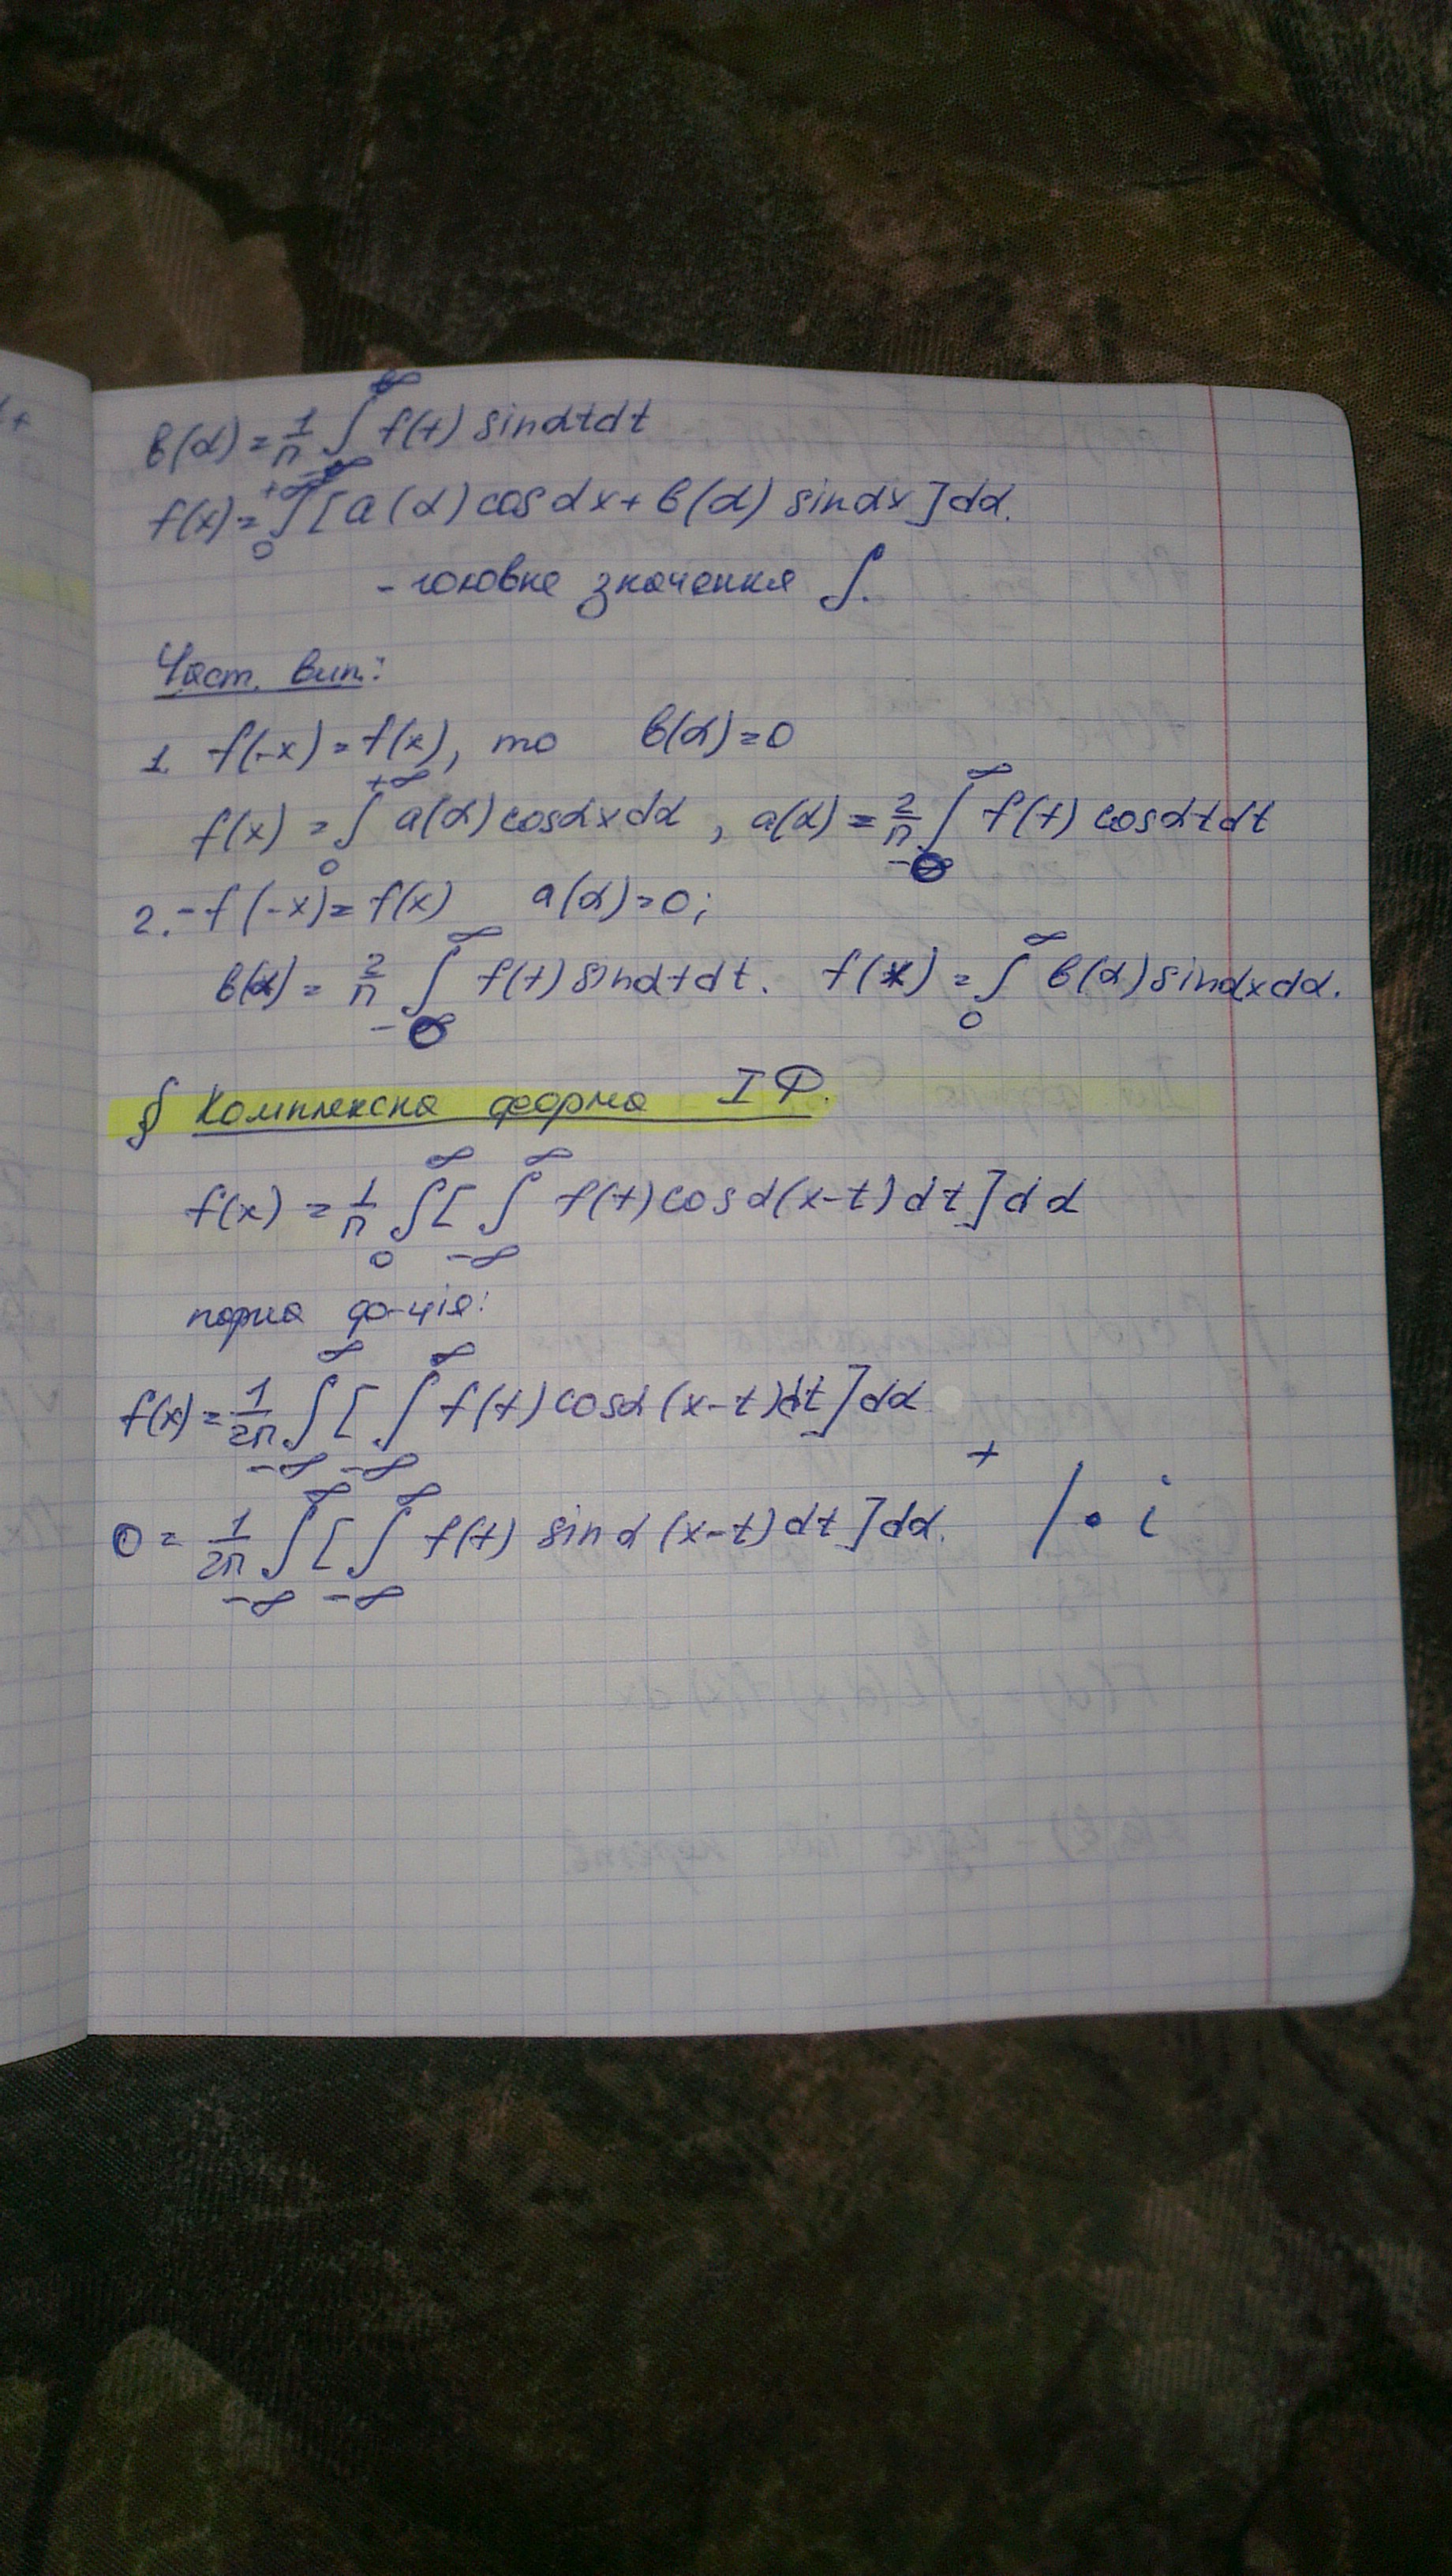 в(α) = 1/π ∫_{-∞}^{∞} f(t) sinαtdt
f(x) = ∫_0^{+∞} [a(α) cosαx + в(α) sinαx] dα.
- головне значення ∫.
Част. вип:
1. f(-x) = f(x), то в(α) = 0
f(x) = ∫_0^{+∞} a(α) cosαxdα , a(α) = 2/π ∫_0^{∞} f(t) cosαtdt
2. -f(-x) = f(x) a(α) = 0;
в(α) = 2/π ∫_0^{∞} f(t) sinαtdt. f(x) = ∫_0^{∞} в(α) sinαxdα.
§ Комплексна форма ІФ.
f(x) = 1/π ∫_0^{∞} [ ∫_{-∞}^{∞} f(t) cosα(x-t) dt ] dα
парна ф-ція:
f(x) = 1/2π ∫_{-∞}^{∞} [ ∫_{-∞}^{∞} f(t) cosα(x-t) dt ] dα
+
0 = 1/2π ∫_{-∞}^{∞} [ ∫_{-∞}^{∞} f(t) sinα(x-t) dt ] dα. / · i